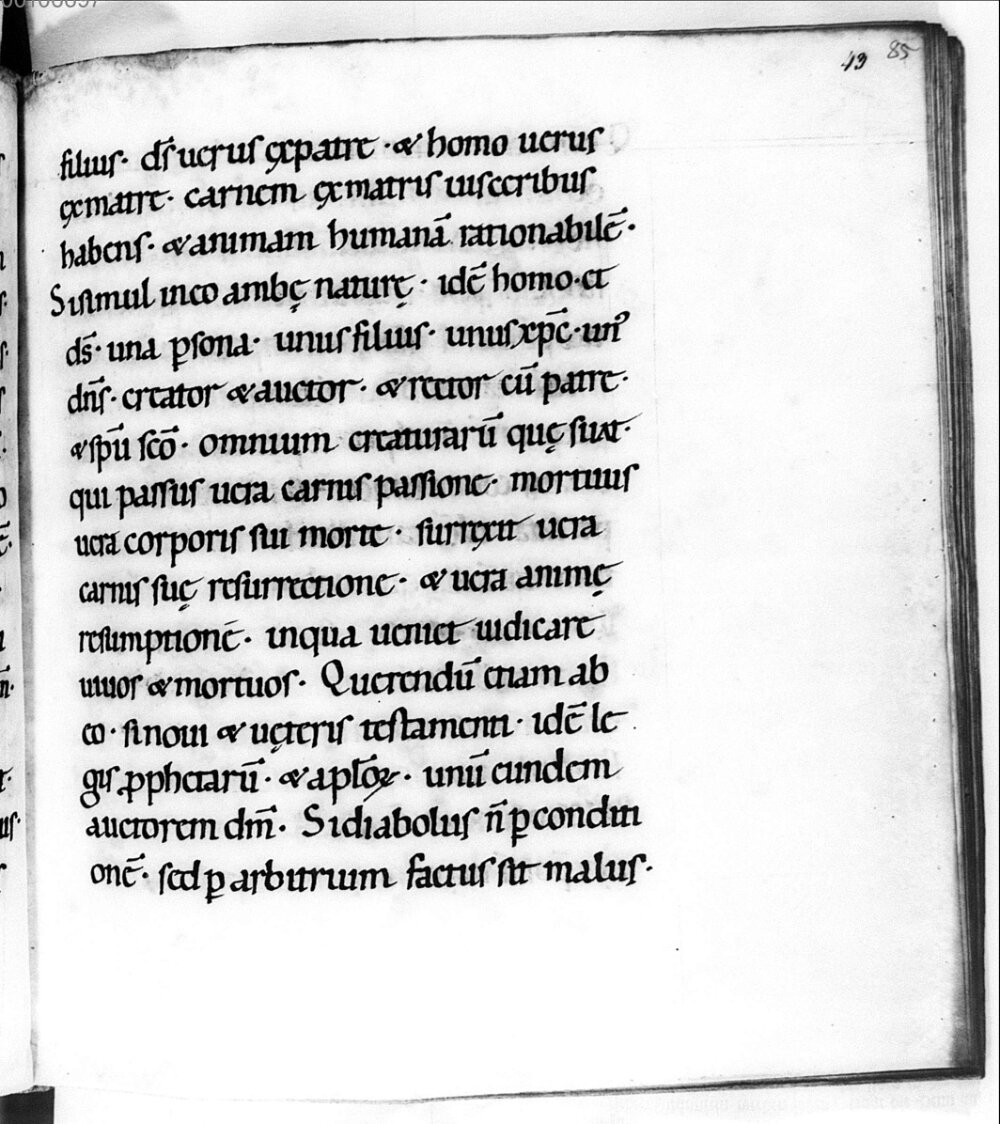 43 85
filiuſ· dſ̄ ueruſ ęxpatre · & homo uerus
ęxmatre· carnem ęxmatriſ uiſceribus
habenſ· & animam humanā rationabilē·
Siſimul ineo ambę naturę · idē homo· et
dſ̄· una ꝑſona· unuſ filiuſ· unuſ xp̄c· un᾽
dn̄ſ· creator & auctor · & rector cū patre·
& ſpū ſcō· omnium creaturarū quę ſunt·
qui paſſus uera carniſ paſſione· mortuus
uera corporiſ ſui morte · ſurręxit uera
carniſ ſuę reſurrectione· & uera animę
reſumptionē· inqua ueniet iudicare
uiuoſ & mortuoſ· Querendū etiam ab
eo · ſinoui & uęteriſ teſtamenti· idē le
giſ ꝓphetarū· & aplōꝝ· unū eundem
auctorem dm̄· Sidiabolus n̄ ꝑ conditi
onē· ſed ꝑ arbitrium factuſ ſit maluſ·